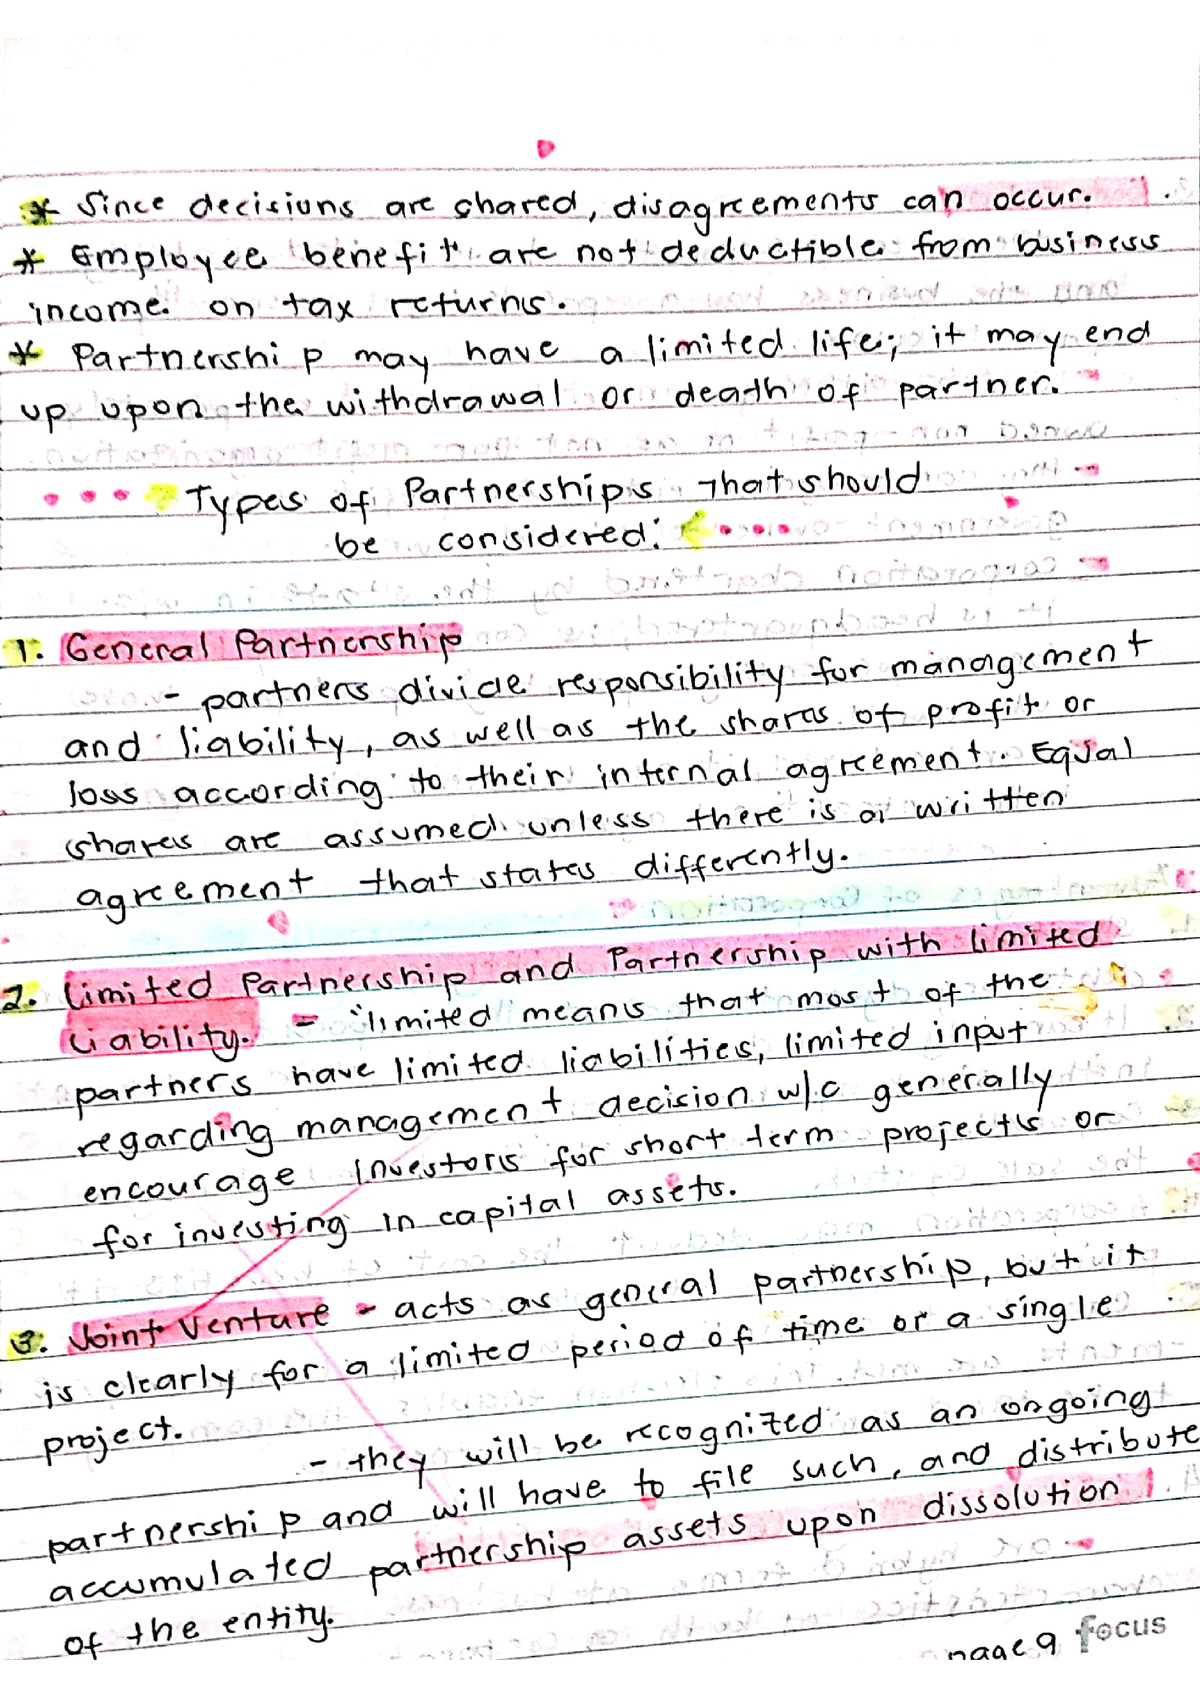 * Since decisions are shared, disagreements can occur.
* Employee benefit are not deductible from business
income on tax returns.
* Partnership may have a limited life; it may end
up upon the withdrawal or death of partner.
Types of Partnerships That should
be considered:
1. General Partnership
- partners divide responsibility for management
and liability, as well as the shares of profit or
loss according to their internal agreement. Equal
shares are assumed unless there is a written
agreement that states differently.
2. Limited Partnership and Partnership with limited
Liability. - "limited means that most of the
partners have limited liabilities, limited input
regarding management decision w/c generally
encourage investors for short term projects or
for investing in capital assets.
3. Joint Venture - acts as general partnership, but it
is clearly for a limited period of time or a single
project.
- they will be recognized as an ongoing
partnership and will have to file such, and distribute
accumulated partnership assets upon dissolution
of the entity.
page 9 focus